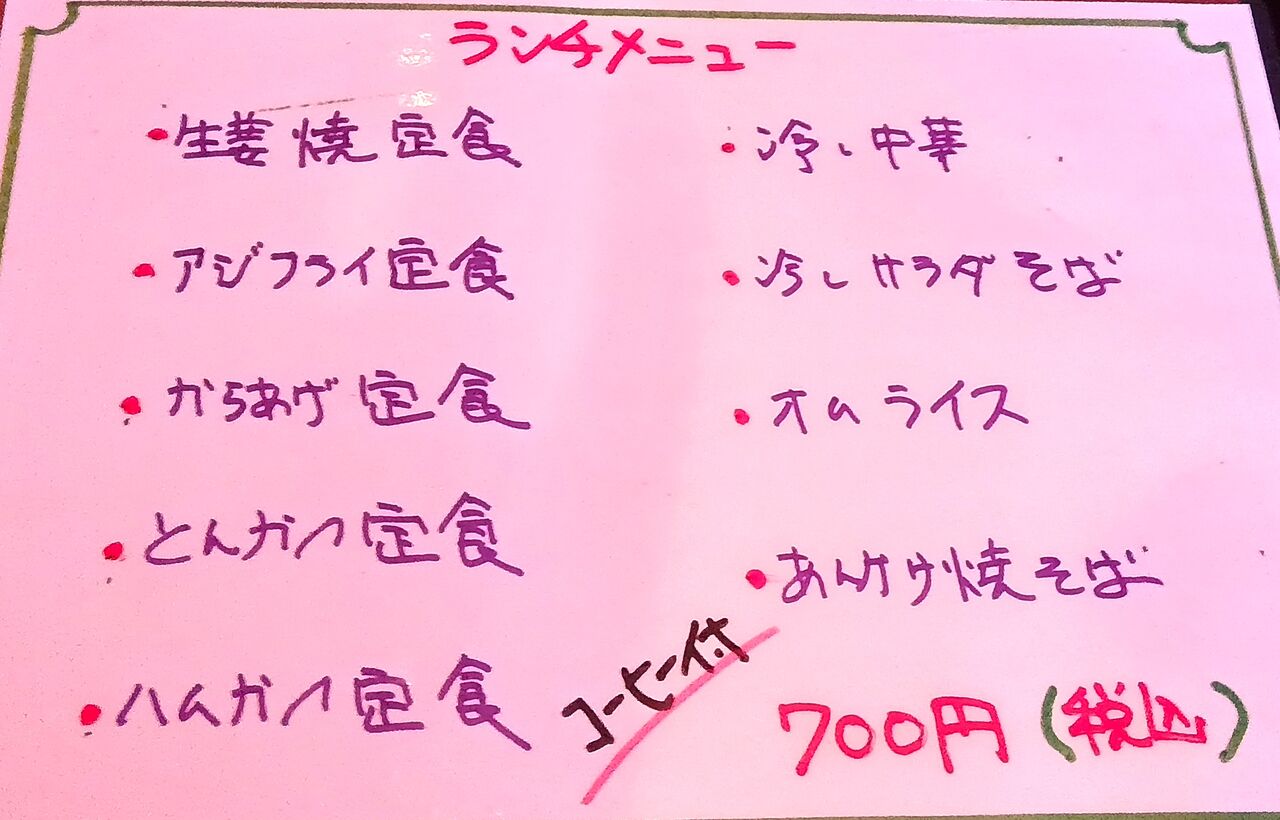 ランチメニュー
・生姜焼定食
・アジフライ定食
・からあげ定食
・とんカツ定食
・ハムカツ定食
・冷し中華
・冷しサラダそば
・オムライス
・あんかけ焼そば
コーヒー付
700円(税込)